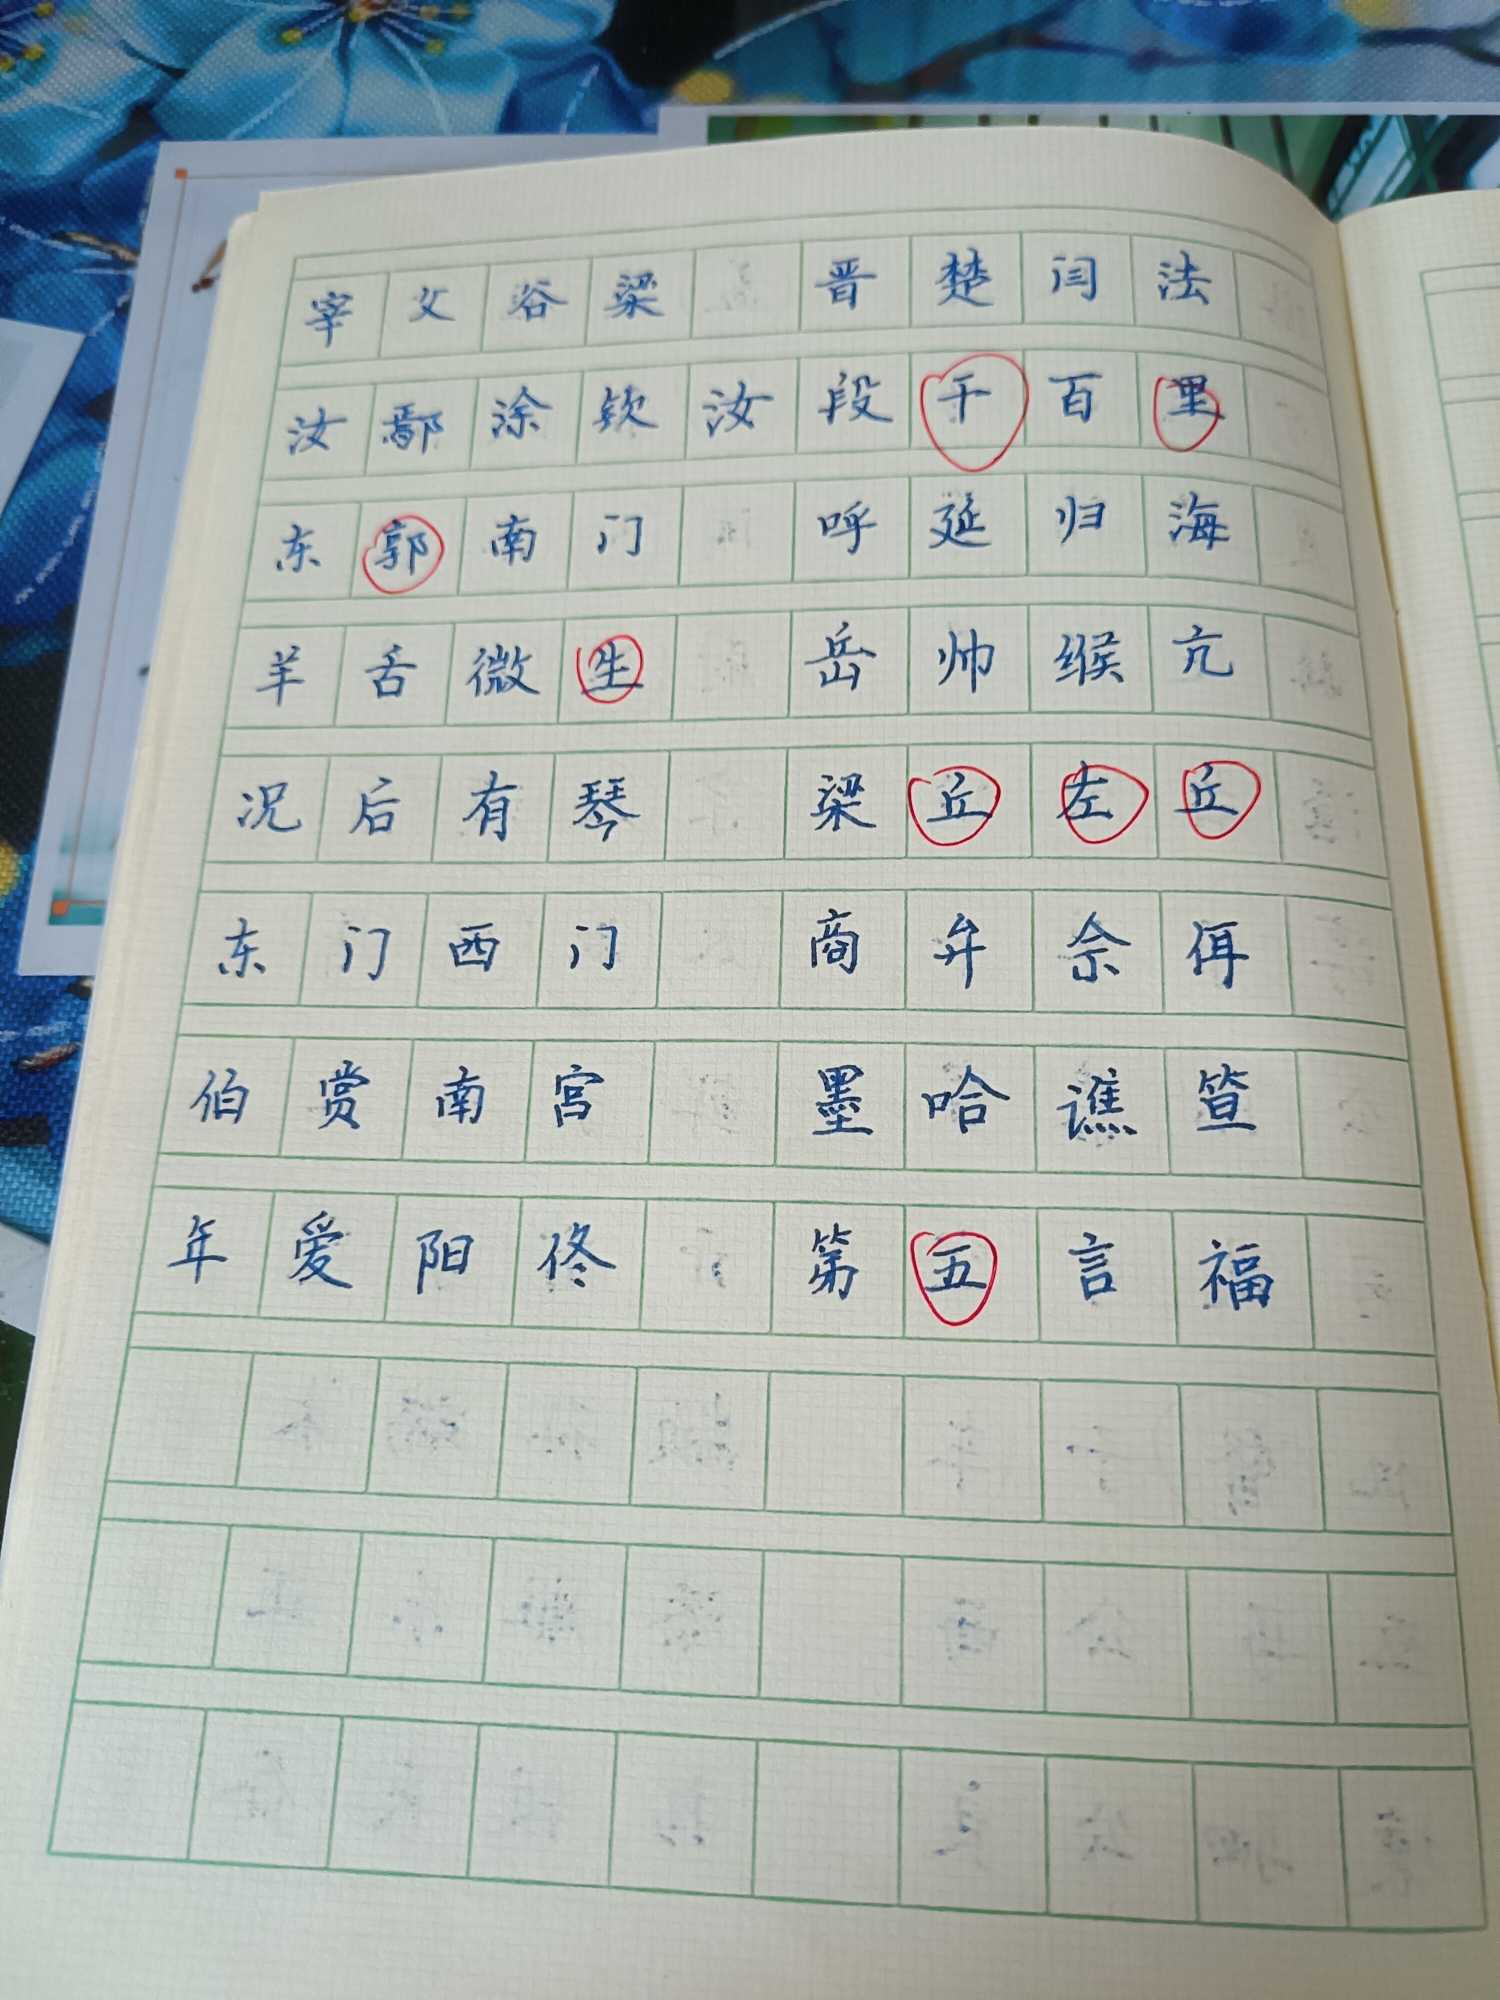 宰父谷梁 晋楚闫法
汝鄢涂钦汝段干百里
东郭南门 呼延归海
羊舌微生 岳帅缑亢
况后有琴 梁丘左丘
东门西门 商牟佘佴
伯赏南宫 墨哈谯笪
年爱阳佟 第五言福